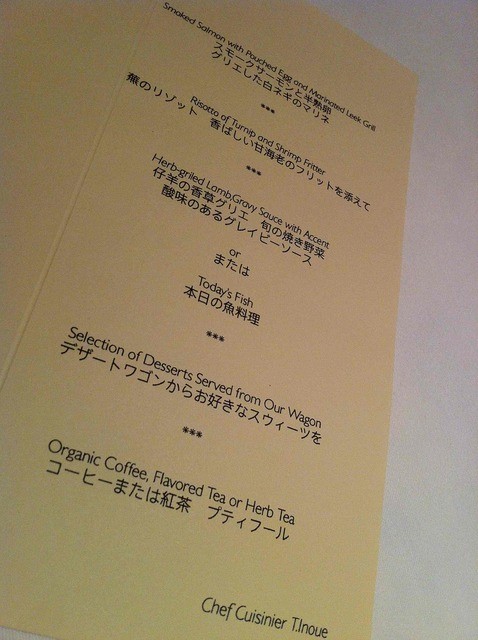 Smoked Salmon with Pouched Egg and Marinated Leek Grill
スモークサーモンと半熟卵
グリエした白ネギのマリネ
***
Risotto of Turnip and Shrimp Fritter
蕪のリゾット　香ばしい甘海老のフリットを添えて
***
Herb-griled Lamb,Gravy Sauce with Accent
仔羊の香草グリエ　旬の焼き野菜
酸味のあるグレイビーソース
or
または
Today's Fish
本日の魚料理
***
Selection of Desserts Served from Our Wagon
デザートワゴンからお好きなスウィーツを
***
Organic Coffee, Flavored Tea or Herb Tea
コーヒーまたは紅茶　プティフール
Chef Cuisinier T.Inoue